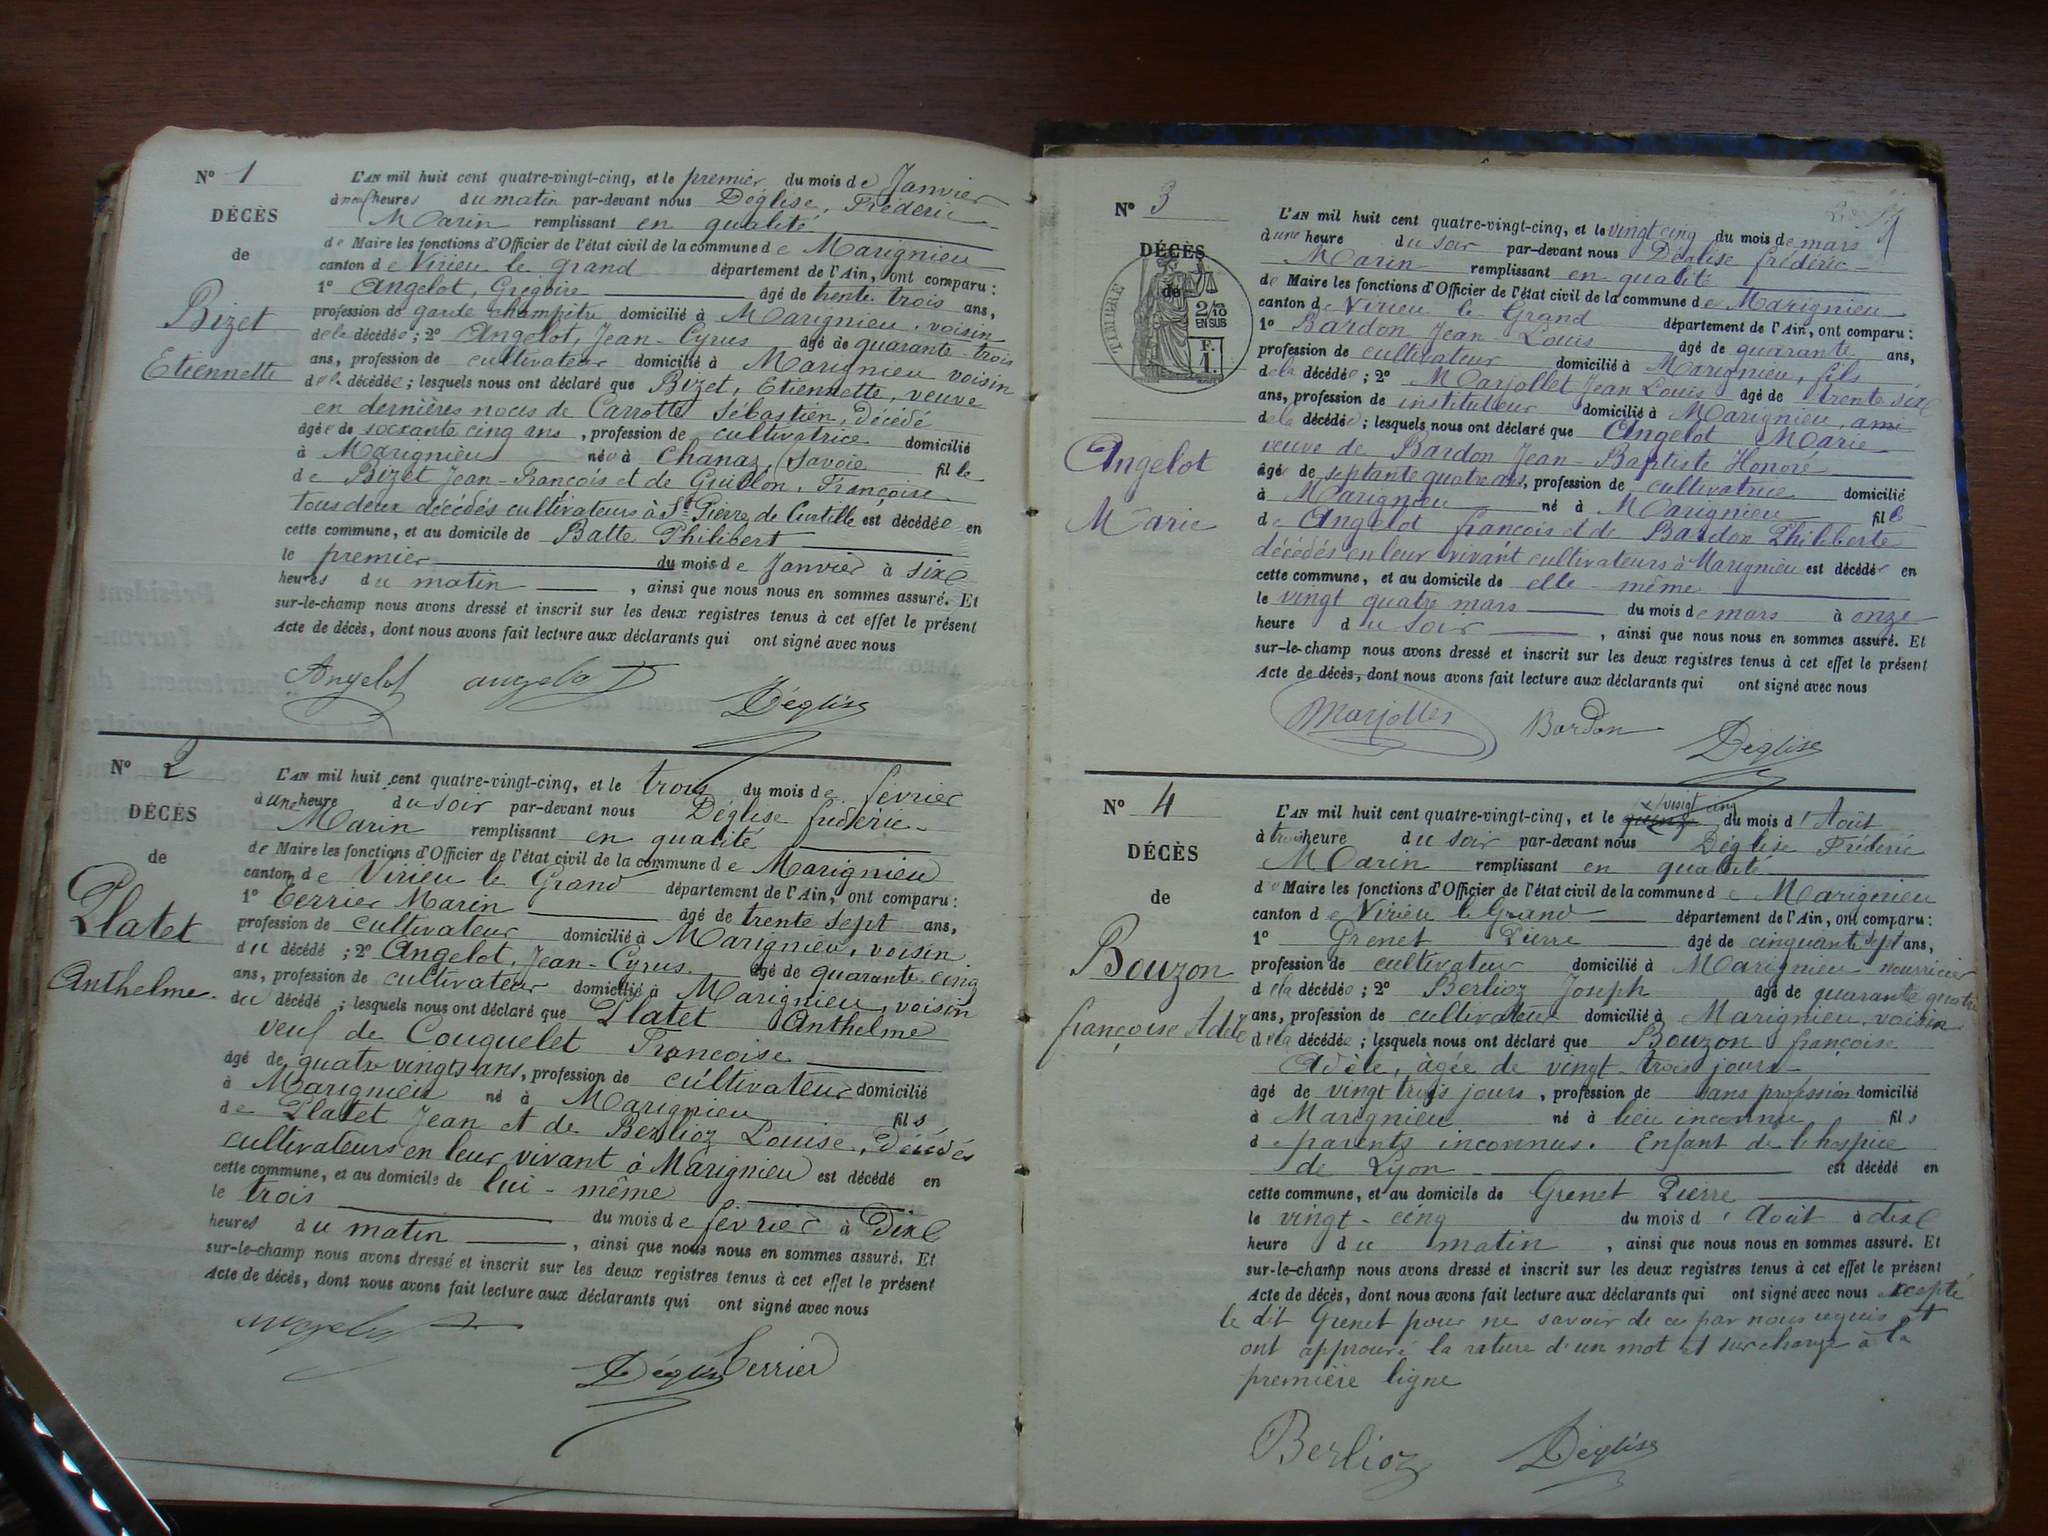 N° 1
DÉCÈS
de
Bizet
Etiennette
L'AN mil huit cent quatre-vingt-cinq, et le premier du mois de Janvier
à neuf heures du matin par-devant nous Déglise, Fréderic
Marin remplissant en qualité
de Maire les fonctions d'Officier de l'état civil de la commune de Marignieu
canton de Virieu le grand département de l'Ain, ont comparu :
1° Angelot, Grégoire âgé de trente trois ans,
profession de garde champêtre domicilié à Marignieu, voisin
de la décédée ; 2° Angelot, Jean-Cyrus âgé de quarante-trois
ans, profession de cultivateur domicilié à Marignieu voisin
de la décédée ; lesquels nous ont déclaré que Bizet, Etiennette, veuve
en dernières noces de Carrotte Sébastien, décédé
âgée de soixante cinq ans, profession de cultivatrice domicilié
à Marignieu née à Chanaz, (Savoie fille
de Bizet Jean-François et de Guillon, Françoise
tous deux décédés cultivateurs à St Pierre de Curtille est décédée en
cette commune, et au domicile de Batte Philibert
le premier du mois de Janvier à six
heures du matin, ainsi que nous nous en sommes assuré. Et
sur-le-champ nous avons dressé et inscrit sur les deux registres tenus à cet effet le présent
Acte de décès, dont nous avons fait lecture aux déclarants qui ont signé avec nous
Angelot angelot Déglise
N° 2
DÉCÈS
de
Platet
Anthelme.
L'AN mil huit cent quatre-vingt-cinq, et le trois du mois de fevrier
à une heure du soir par-devant nous Déglise fréderic
Marin remplissant en qualité
de Maire les fonctions d'Officier de l'état civil de la commune de Marignieu
canton de Virieu le Grand département de l'Ain, ont comparu :
1° Terrier Marin âgé de trente sept ans,
profession de cultivateur domicilié à Marignieu, voisin
du décédé ; 2° Angelot, Jean-Cyrus âgé de quarante cinq
ans, profession de cultivateur domicilié à Marignieu, voisin
du décédé ; lesquels nous ont déclaré que Platet Anthelme
veuf de Couquelet Francoise
âgé de quatre vingts ans, profession de cultivateur domicilié
à Marignieu né à Marignieu fils
de Platet Jean et de Berlioz Louise, Décédés
cultivateurs en leur vivant à Marignieu est décédé en
cette commune, et au domicile de lui-même
le trois du mois de fevrier à Dix
heures du matin, ainsi que nous nous en sommes assuré. Et
sur-le-champ nous avons dressé et inscrit sur les deux registres tenus à cet effet le présent
Acte de décès, dont nous avons fait lecture aux déclarants qui ont signé avec nous
angelot Déglise Terrier
N° 3
DÉCÈS
de
TIMBRE
2/10
EN SUS
F.
1.
Angelot
Marie
L'AN mil huit cent quatre-vingt-cinq, et le vingt cinq du mois de mars
à une heure du soir par-devant nous Déglise fréderic
Marin remplissant en qualité
de Maire les fonctions d'Officier de l'état civil de la commune de Marignieu
canton de Virieu le Grand département de l'Ain, ont comparu :
1° Bardon Jean-Louis âgé de quarante ans,
profession de cultivateur domicilié à Marignieu, fils
de la décédée ; 2° Marjollet Jean Louis âgé de trente six
ans, profession de instituteur domicilié à Marignieu, ami
de la décédée ; lesquels nous ont déclaré que Angelot Marie
veuve de Bardon Jean-Baptiste Honoré
âgée de septante quatre ans, profession de cultivatrice domicilié
à Marignieu né à Marignieu fille
de Angelot françois et de Bardon Philiberte
décédés en leur vivant cultivateurs à Marignieu est décédée en
cette commune, et au domicile de elle-même
le vingt quatre mars du mois de mars à onze
heure du soir, ainsi que nous nous en sommes assuré. Et
sur-le-champ nous avons dressé et inscrit sur les deux registres tenus à cet effet le présent
Acte de décès, dont nous avons fait lecture aux déclarants qui ont signé avec nous
Marjollet Bardon Déglise
N° 4
DÉCÈS
de
Bouzon
françoise Adèle
(x) vingt cinq
L'AN mil huit cent quatre-vingt-cinq, et le du mois d'Août
à trois heure du soir par-devant nous Déglise Fréderic
Marin remplissant en qualité
de Maire les fonctions d'Officier de l'état civil de la commune de Marignieu
canton de Virieu le Grand département de l'Ain, ont comparu :
1° Grenet Pierre âgé de cinquante sept ans,
profession de cultivateur domicilié à Marignieu nourricier
de la décédée ; 2° Berlioz Joseph âgé de quarante quatre
ans, profession de cultivateur domicilié à Marignieu, voisin
de la décédée ; lesquels nous ont déclaré que Bouzon françoise
Adèle, âgée de vingt trois jours
âgé de vingt trois jours, profession de sans profession domicilié
à Marignieu né à lieu inconnu fils
de parents inconnus. Enfant de l'hospice
de Lyon est décédé en
cette commune, et au domicile de Grenet Pierre
le vingt-cinq du mois d'Août à dix
heure du matin, ainsi que nous nous en sommes assuré. Et
sur-le-champ nous avons dressé et inscrit sur les deux registres tenus à cet effet le présent
Acte de décès, dont nous avons fait lecture aux déclarants qui ont signé avec nous excepté
le dit Grenet pour ne savoir de ce par nous requis
ont approuvé la rature d'un mot et surcharge à la
première ligne
Berlioz Déglise